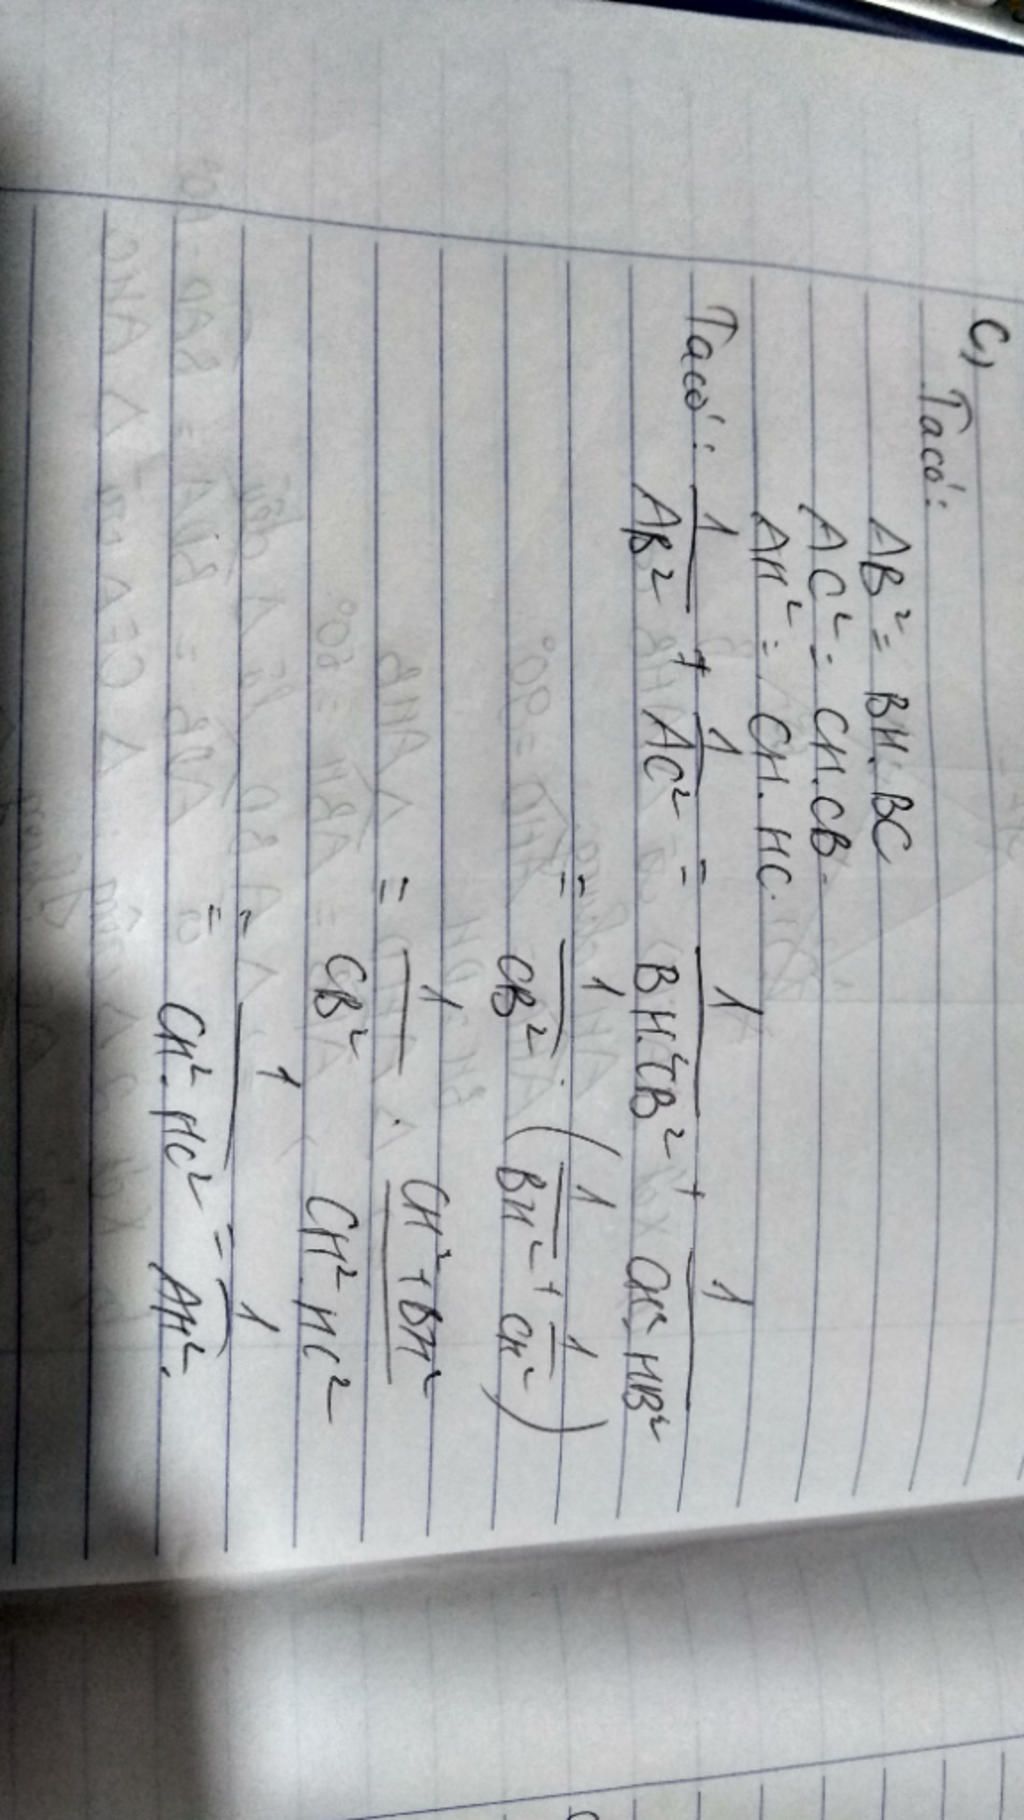 c,
Ta có:
AB² = BH.BC
AC² = CH.CB.
AH² = CH.HC.
Ta có: 1/AB² + 1/AC² = 1/BH².CB² + 1/CH².HB²
= 1/CB² . (1/BH² + 1/CH²)
= 1/CB² . CH²+BH²/CH².HC²
= 1/CH².HC² = 1/AH².